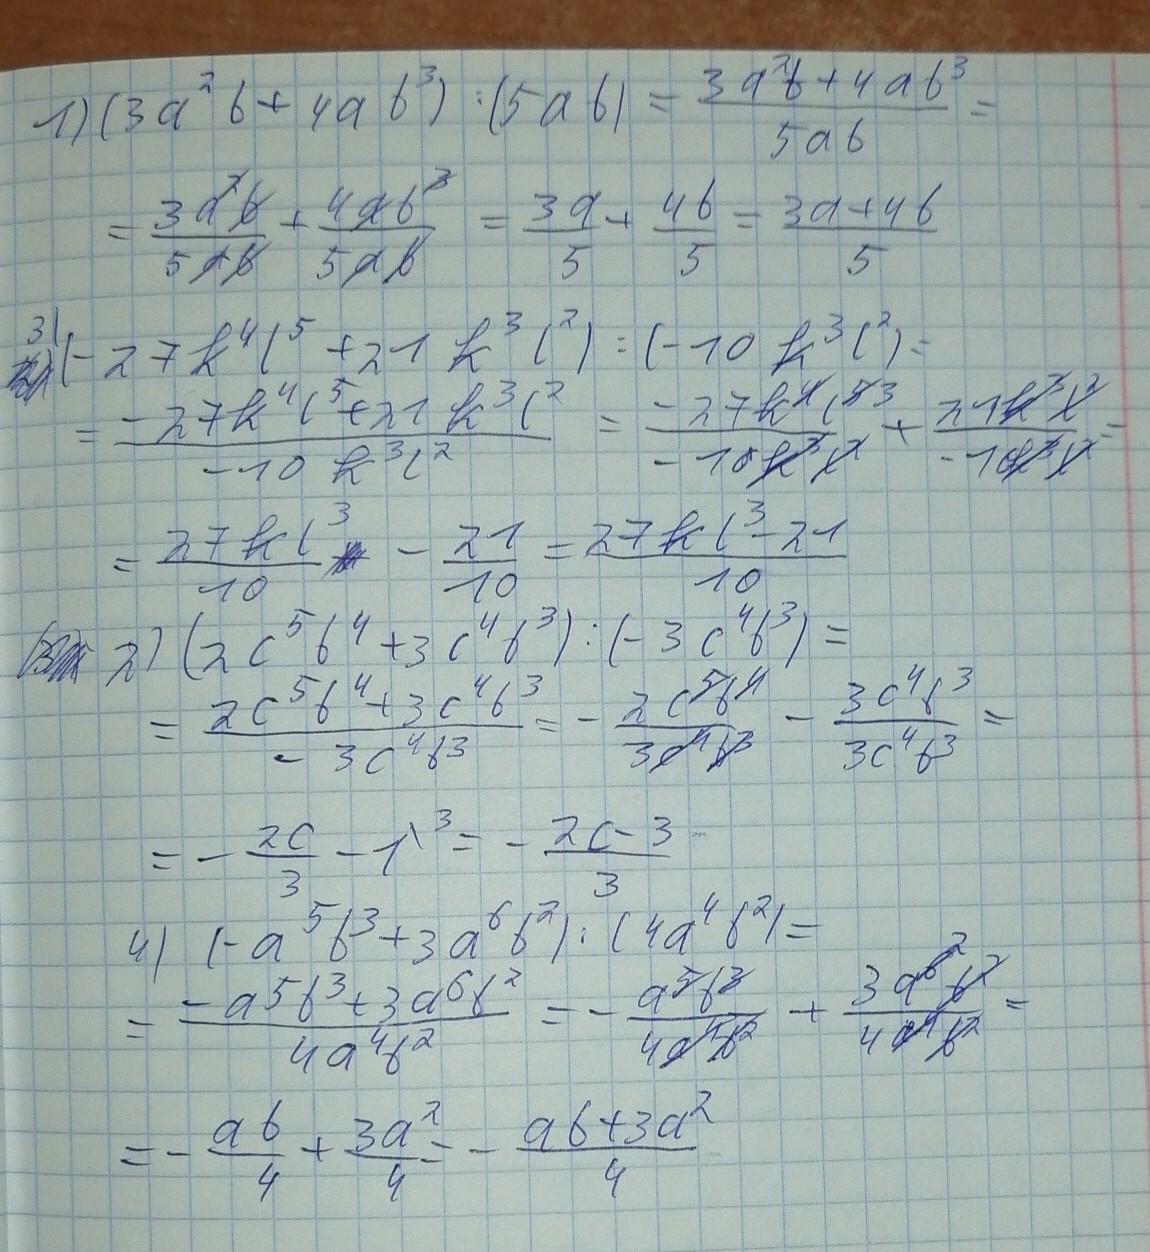 1) (3a²b + 4ab³) : (5ab) = (3a²b + 4ab³)/(5ab) =
= 3a²b/5ab + 4ab³/5ab = 3a/5 + 4b/5 = (3a + 4b)/5
3) (-27k⁴l⁵ + 21k³l²) : (-10k³l²) =
= (-27k⁴l⁵ + 21k³l²)/(-10k³l²) = -27k⁴l⁵ ³/-10k³l² + 21k³l²/-10k³l² =
= 27kl³/10 - 21/10 = (27kl³ - 21)/10
2) (2c⁵b⁴ + 3c⁴b³) : (-3c⁴b³) =
= (2c⁵b⁴ + 3c⁴b³)/(-3c⁴b³) = - 2c⁵b⁴/3c⁴b³ - 3c⁴b³/3c⁴b³ =
= - 2c/3 - 1\³ = - (2c - 3)/3
4) (-a⁵b³ + 3a⁶b²) : (4a⁴b²) =
= (-a⁵b³ + 3a⁶b²)/(4a⁴b²) = - a⁵b³/4a⁴b² + 3a⁶ ²b²/4a⁴b² =
= - ab/4 + 3a²/4 = - (ab + 3a²)/4